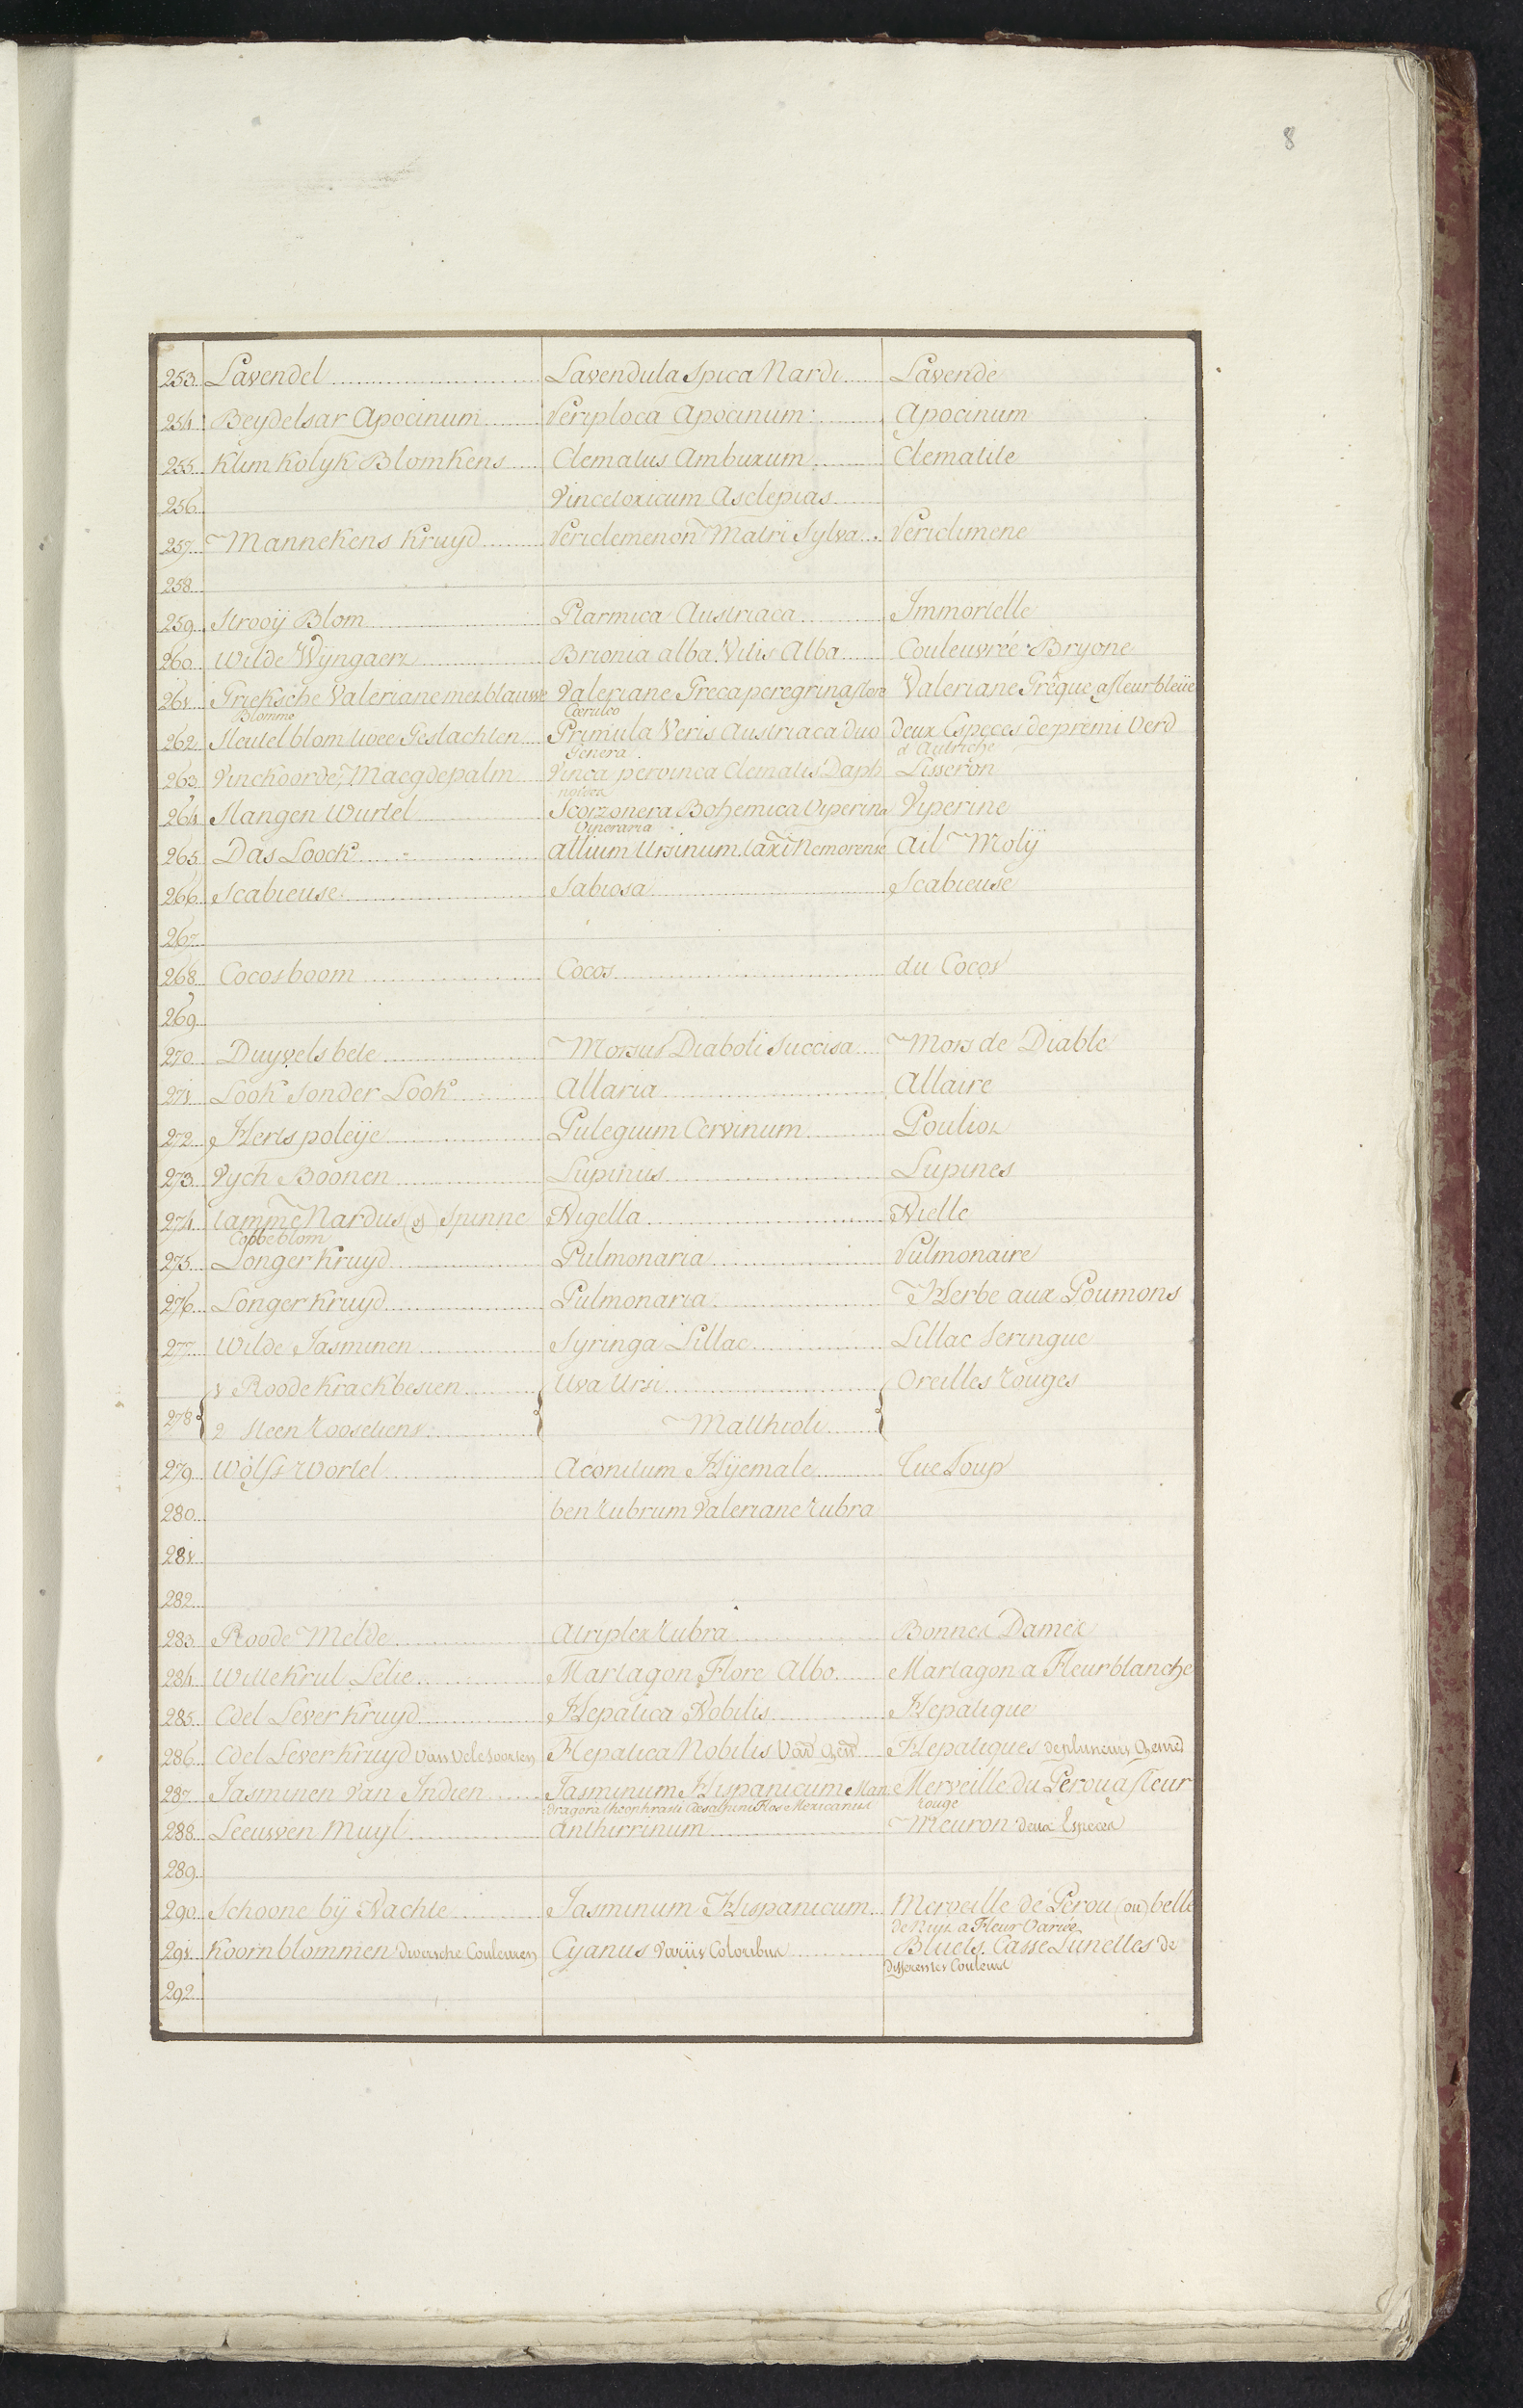 8
253 Lavendel Lavendula Spica Nardi Lavende
254 Beydelsar Apocinum Periploca Apocinum Apocinum
255 Klim Kolyk Blomkens Clematus Ambuxum Clematite
256 Vincetoxicum Asclepias
257 Mannekens Kruyd Periclemenon Matri Sylva Periclimene
258
259 Strooÿ Blom Ptarmica Austriaca Immortelle
260 Wilde Wÿngaert Brionia alba Vitis Alba Couleuvrée Bryone
261 Grieksche Valeriane met blauwe Valeriane Greca peregrina flore Valeriane Grêque a fleur bleüe
Blomme Cœruleo
262 Sleutelblom twee Geslachten Primula Veris Austriaca duo deux Especes de premi Verd
Genera d'Autriche
263 Vinckoorde, Maegdepalm Vinca pervinca Clematis Daph Lisseron
noides
264 Slangen Wurtel Scorzonera Bohemica Viperina Viperine
Vineraria
265 Das Loock allium Ursinum taxi Nemorense Ail Molÿ
266 Scabieuse Sabiosa Scabieuse
267
268 Cocosboom Cocos du Cocos
269
270 Duyvels bete Morsus Diaboli Succisa Mors de Diable
271 Look sonder Look Allaria Allaire
272 Herts poleÿe Pulegium Cervinum Pouliot
273 Vych Boonen Lupinus Lupines
274 tamme Nardus Spinne Nigella Nielle
Cobbeblom
275 Longer Kruyd Pulmonaria Pulmonaire
276 Longer Kruyd Pulmonaria Herbe aux Poumons
277 Wilde Jasminen Syringa Lillac Lillac Seringue
1 Roode Krackbesien Uva Ursi Oreilles rouges
278 2 Steen Rooseliens Matthioli
279 Wolfs Wortel Aconitum Hÿemale Tue Loup
280 ben rubrum Valeriane rubra
281
282
283 Roode Melde Atriplex rubra Bonnes Dames
284 Witte Krul Lelie Martagon Flore Albo Martagon a Fleur blanche
285 Edel Lever Kruyd Hepatica Nobilis Hepatique
286 Edel Lever Kruyd van vele soorten Hepatica Nobilis Hepatiques de plusieurs
287 Jasminen van Indien Jasminum Hispanicum Man Merveille du Perou a fleur
dragora Theophrasti Cæsalpini Flos Mexicanus rouge
288 Leeuwen Muyl Anthirrinum Meuron deux Especes
289
290 Schoone bÿ Nachte Jasminum Hispanicum Merveille de Perou (ou) belle
de Nuit a Fleur Variée
291 Koornblommen diversche Couleuren Cyanus variis Coloribus Bluets. Casse Lunettes de
differentes Couleurs
292